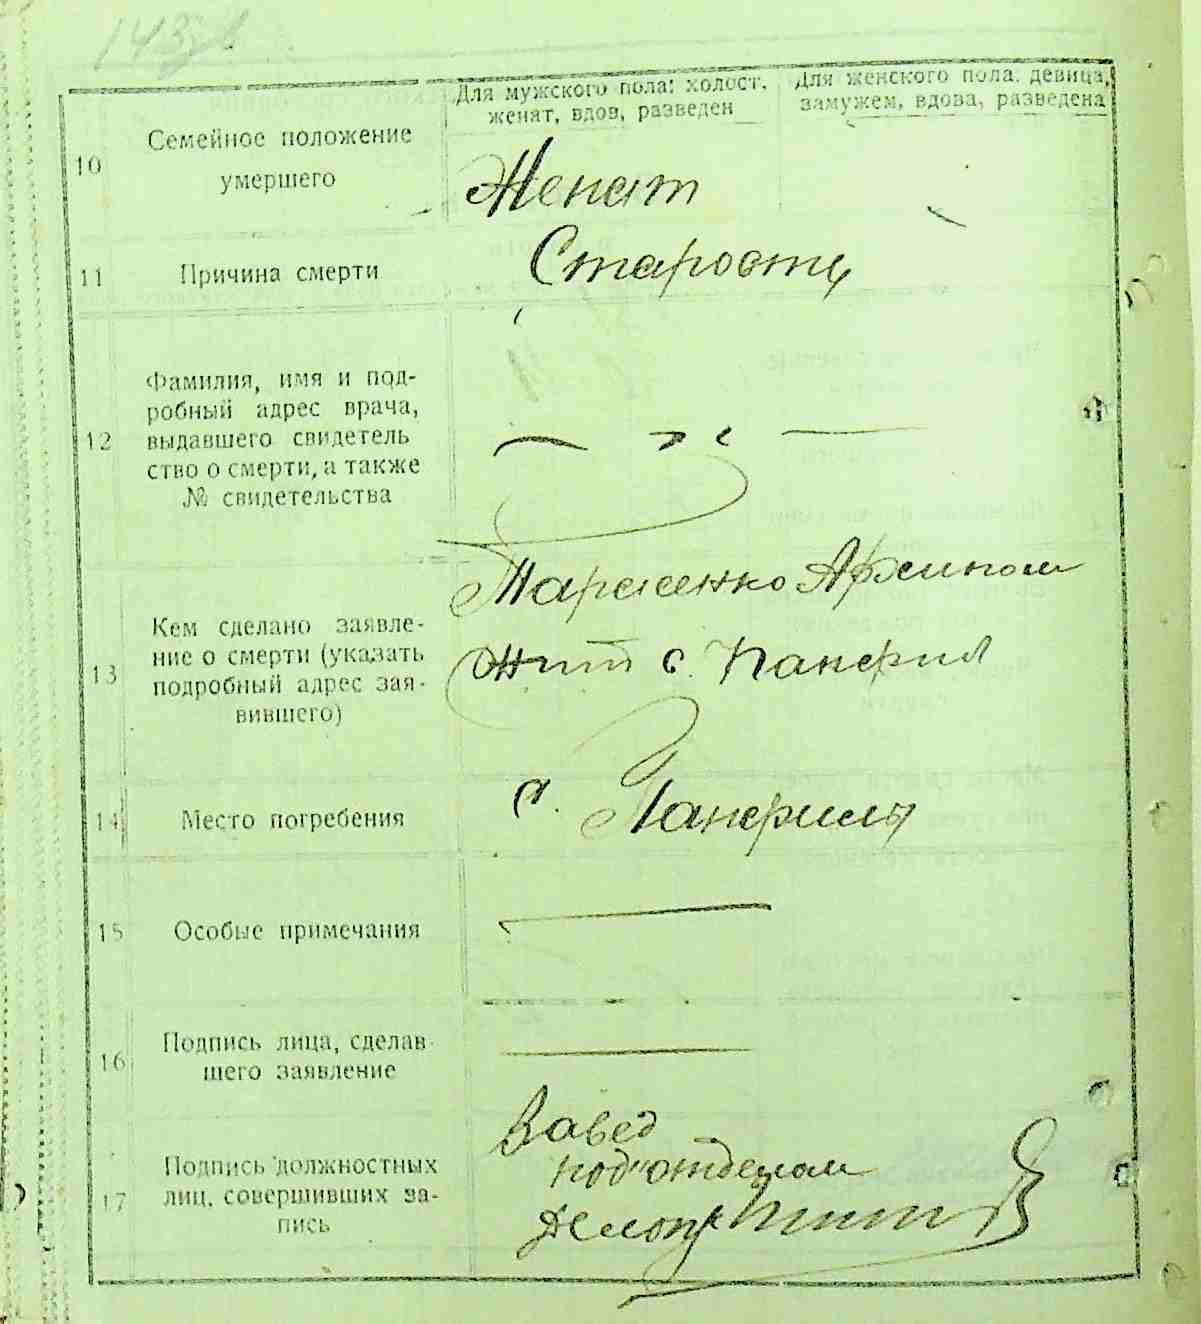 143
Для мужского пола: холост,
женат, вдов, разведен
Для женского пола: девица,
замужем, вдова, разведена
10
Семейное положение
умершего
Женат
11
Причина смерти
Старость
12
Фамилия, имя и под-
робный адрес врача,
выдавшего свидетель
ство о смерти, а также
№ свидетельства
13
Кем сделано заявле-
ние о смерти (указать
подробный адрес зая-
вившего)
Архипом
жит с. Панфил
14
Место погребения
с. Панфилы
15
Особые примечания
16
Подпись лица, сделав-
шего заявление
17
Подпись должностных
лиц, совершивших за-
пись
Завед
подотделом